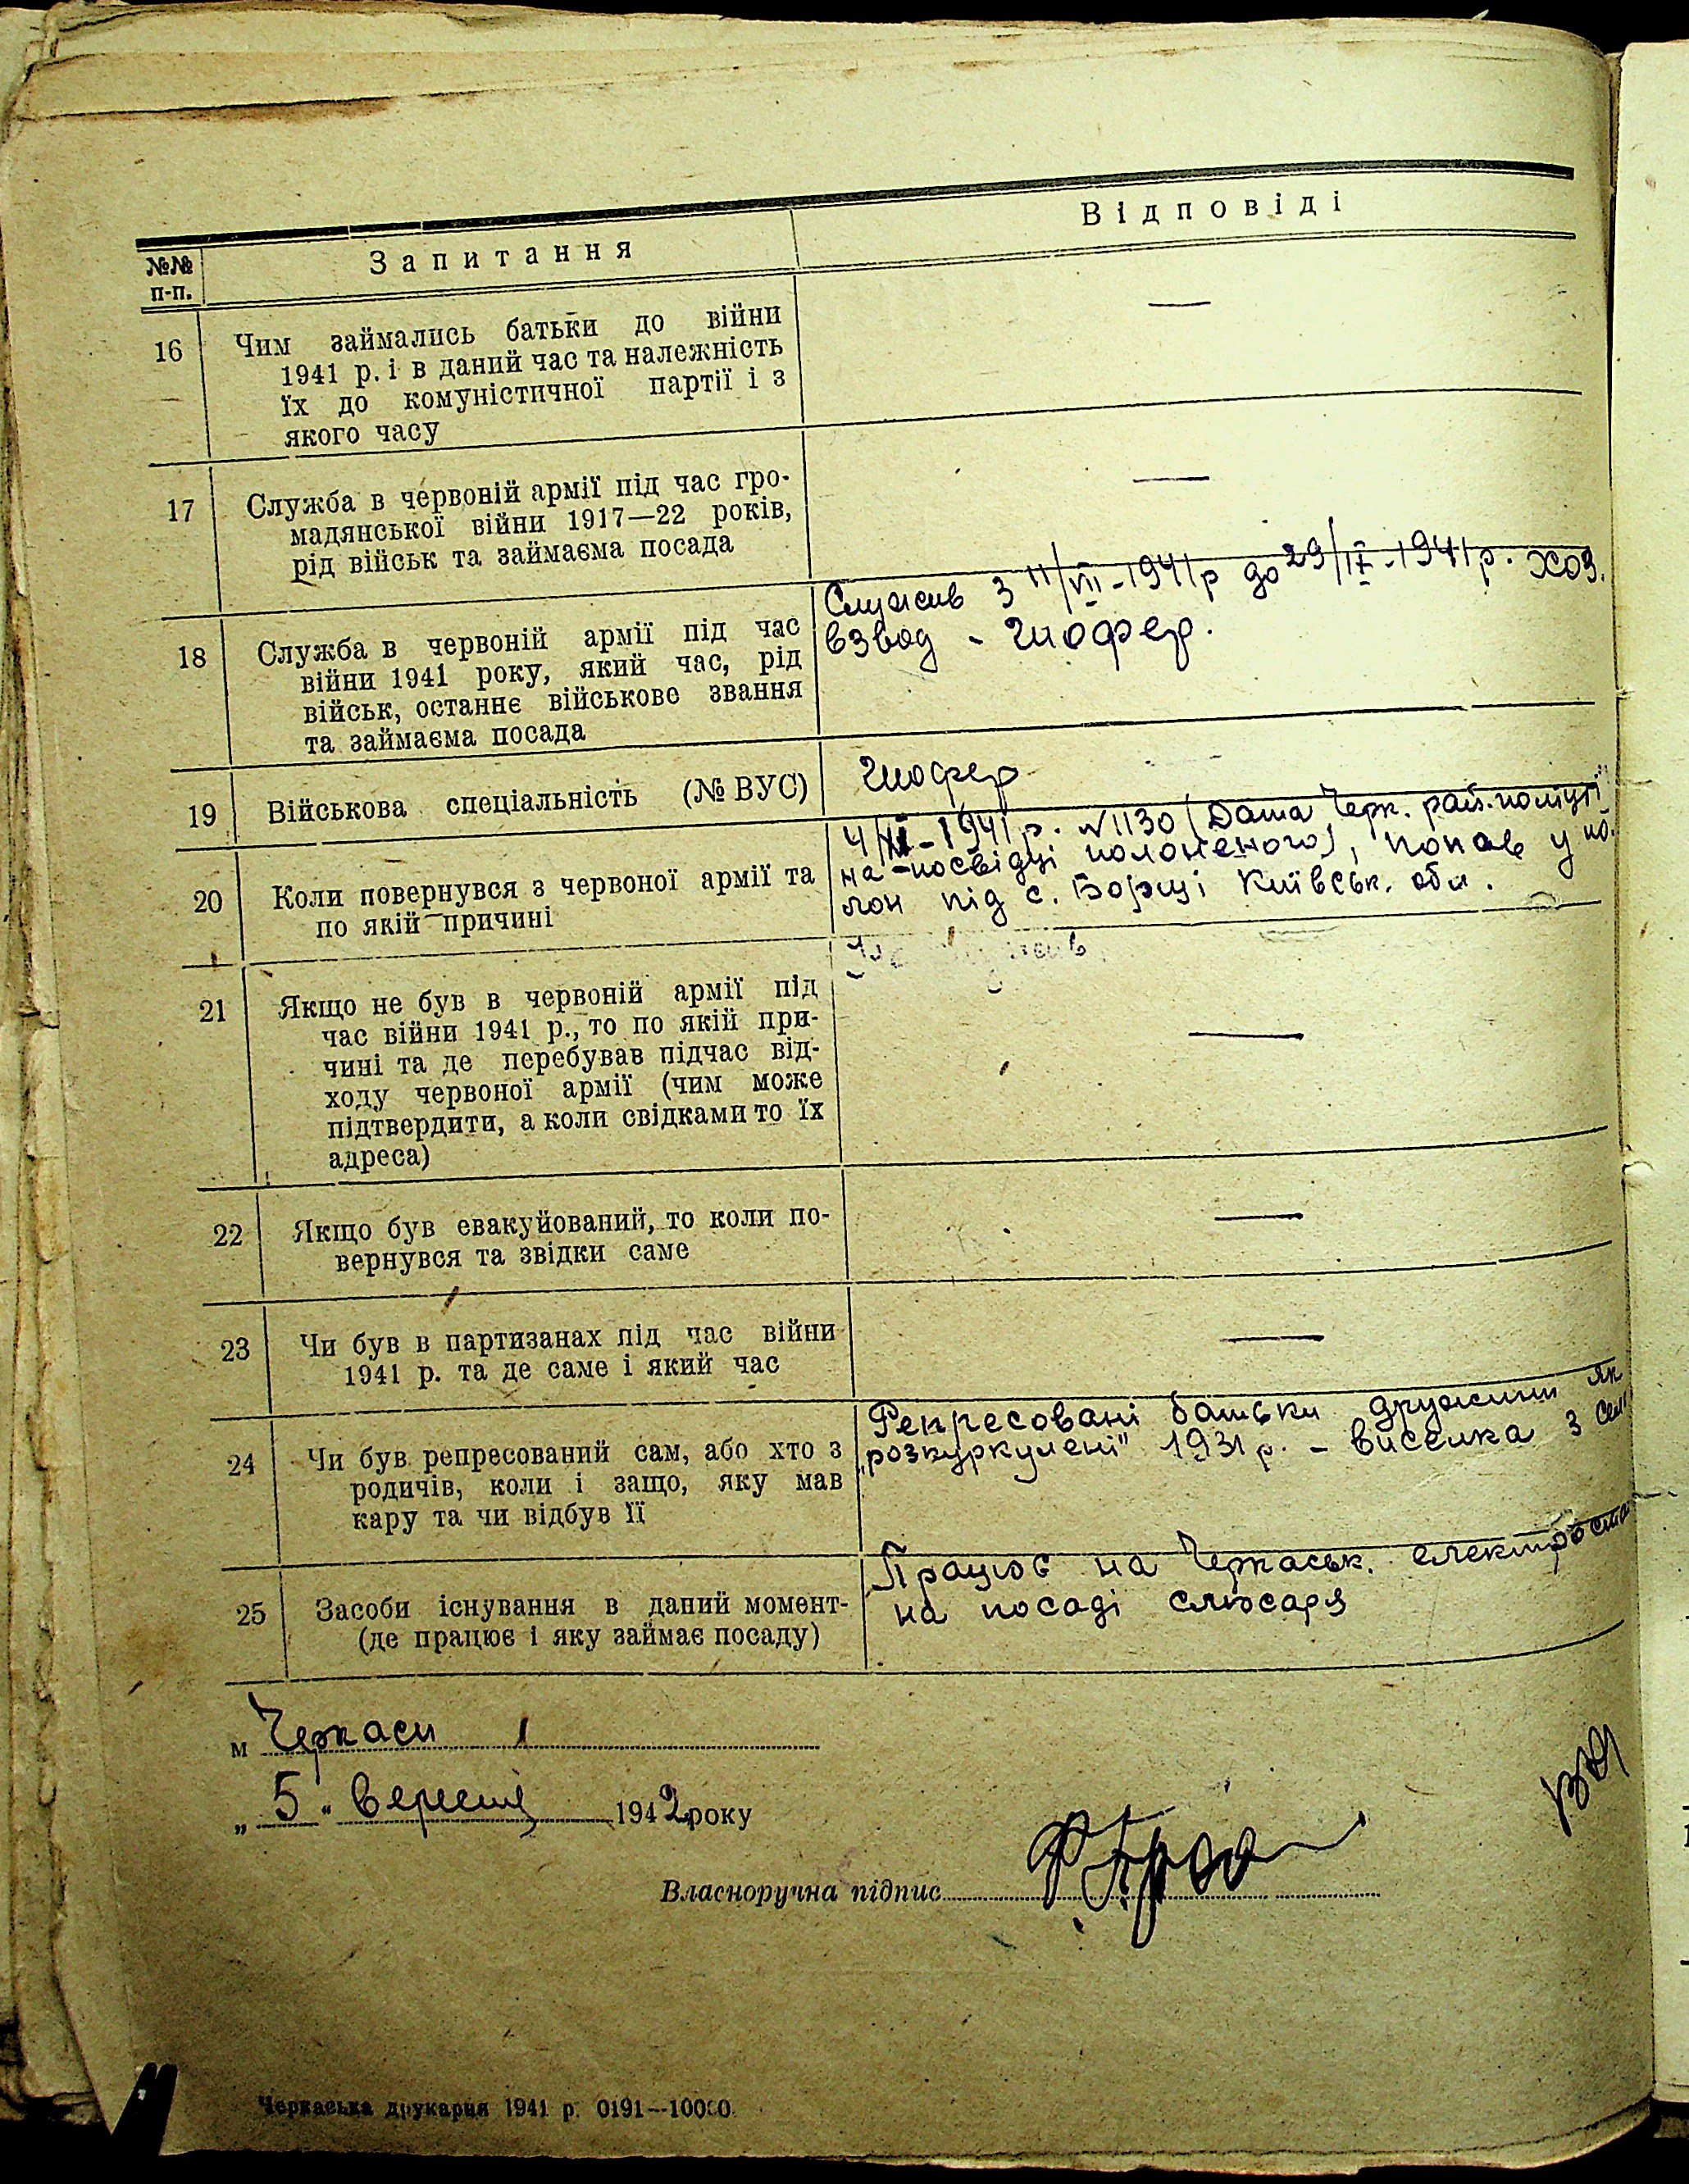 №№ п-п.
Запитання
Відповіді
16
Чим займались батьки до війни
1941 р. і в даний час та належність
їх до комуністичної партії і з
якого часу
—
17
Служба в червоній армії під час гро-
мадянської війни 1917—22 років,
рід військ та займаєма посада
—
18
Служба в червоній армії під час
війни 1941 року, який час, рід
військ, останнє військове звання
та займаєма посада
Служив з 11/VII-1941р до 29/IX-1941р. хоз.
взвод - шофер.
19
Військова спеціальність (№ ВУС)
шофер
20
Коли повернувся з червоної армії та
по якій причині
1941 р. №1130 (Дата Черк. рай.
на посвідці полоненого), попав у по-
лон під с. Борщі Київськ. обл.
21
Якщо не був в червоній армії під
час війни 1941 р., то по якій при-
чині та де перебував підчас від-
ходу червоної армії (чим може
підтвердити, а коли свідками то їх
адреса)
—
22
Якщо був евакуйований, то коли по-
вернувся та звідки саме
—
23
Чи був в партизанах під час війни
1941 р. та де саме і який час
—
24
Чи був репресований сам, або хто з
родичів, коли і защо, яку мав
кару та чи відбув її
Репресовані батьки дружини як
„розкуркулені" 1931 р. - виселка з
25
Засоби існування в даний момент-
(де працює і яку займає посаду)
Працює на Черкаськ. електроста
на посаді слюсаря
м Черкаси
„ 5 " вересня 1942 року
Власноручна підпис
Черкаська друкарня 1941 р. 0191—10000